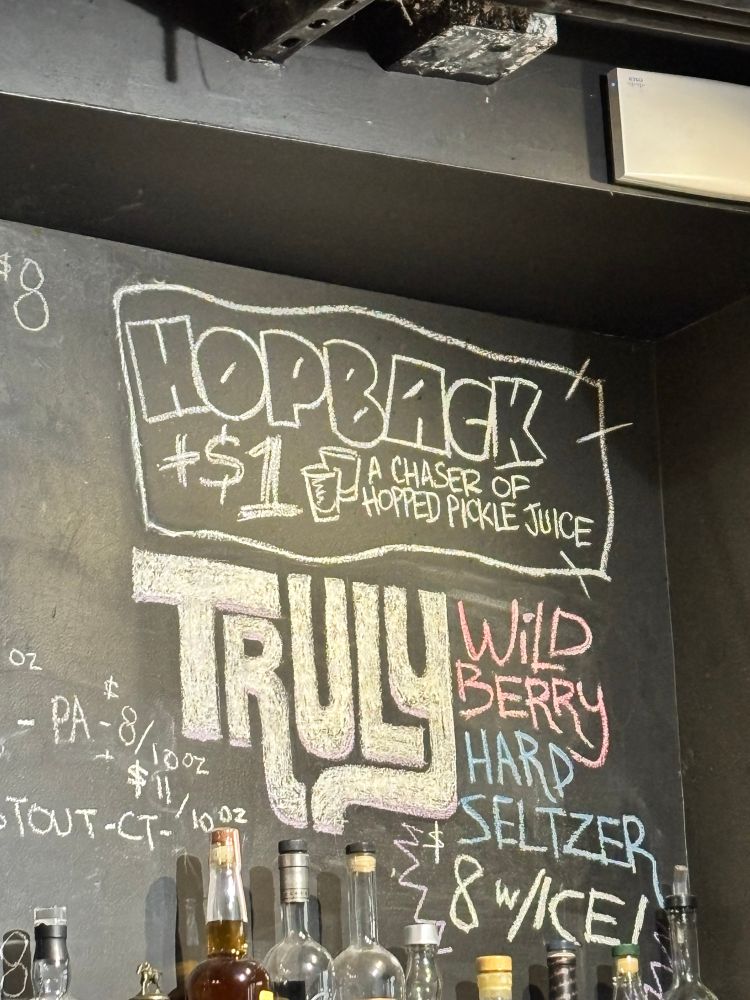 $8
HOPBACK
+$1 A CHASER OF
HOPPED PICKLE JUICE
TRULY WILD
BERRY
HARD
SELTZER
$8 w/ICE!
OZ
- PA - $8/10oz
$11/10oz
STOUT-CT-
8